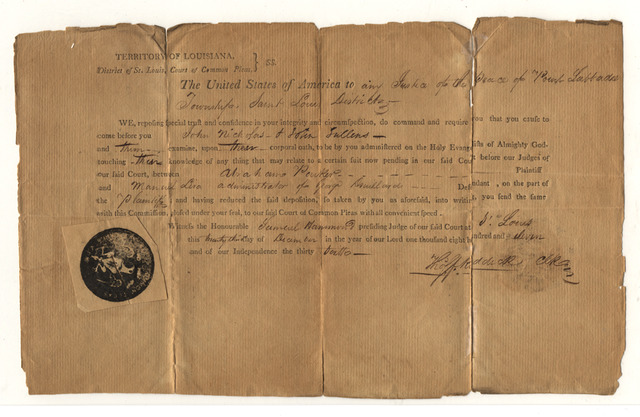 TERRITORY OF LOUISIANA,
District of St. Louis, Court of Common Pleas. } ss.
The United States of America to any Justice of the Peace of
Township Saint Louis District
WE, reposing special trust and confidence in your integrity and circumspection, do command and require you that you cause to
come before you John Nicholas & John
and them examine, upon their corporal oath, to be by you administered on the Holy Evangelists of Almighty God-
touching their knowledge of any thing that may relate to a certain suit now pending in our said Court before our Judges of
our said Court, between Abraham Plaintiff
and Manuel Lisa administrator of Defendant , on the part of
the Plaintiff and having reduced the said deposition, so taken by you as aforesaid, into writing you send the same
with this Commission, closed under your seal, to our said Court of Common Pleas with all convenient speed.
Witness the Honourable Samuel Hammond presiding Judge of our said Court at St. Louis
this day of December in the year of our Lord one thousand eight hundred and eleven
and of our Independence the thirty